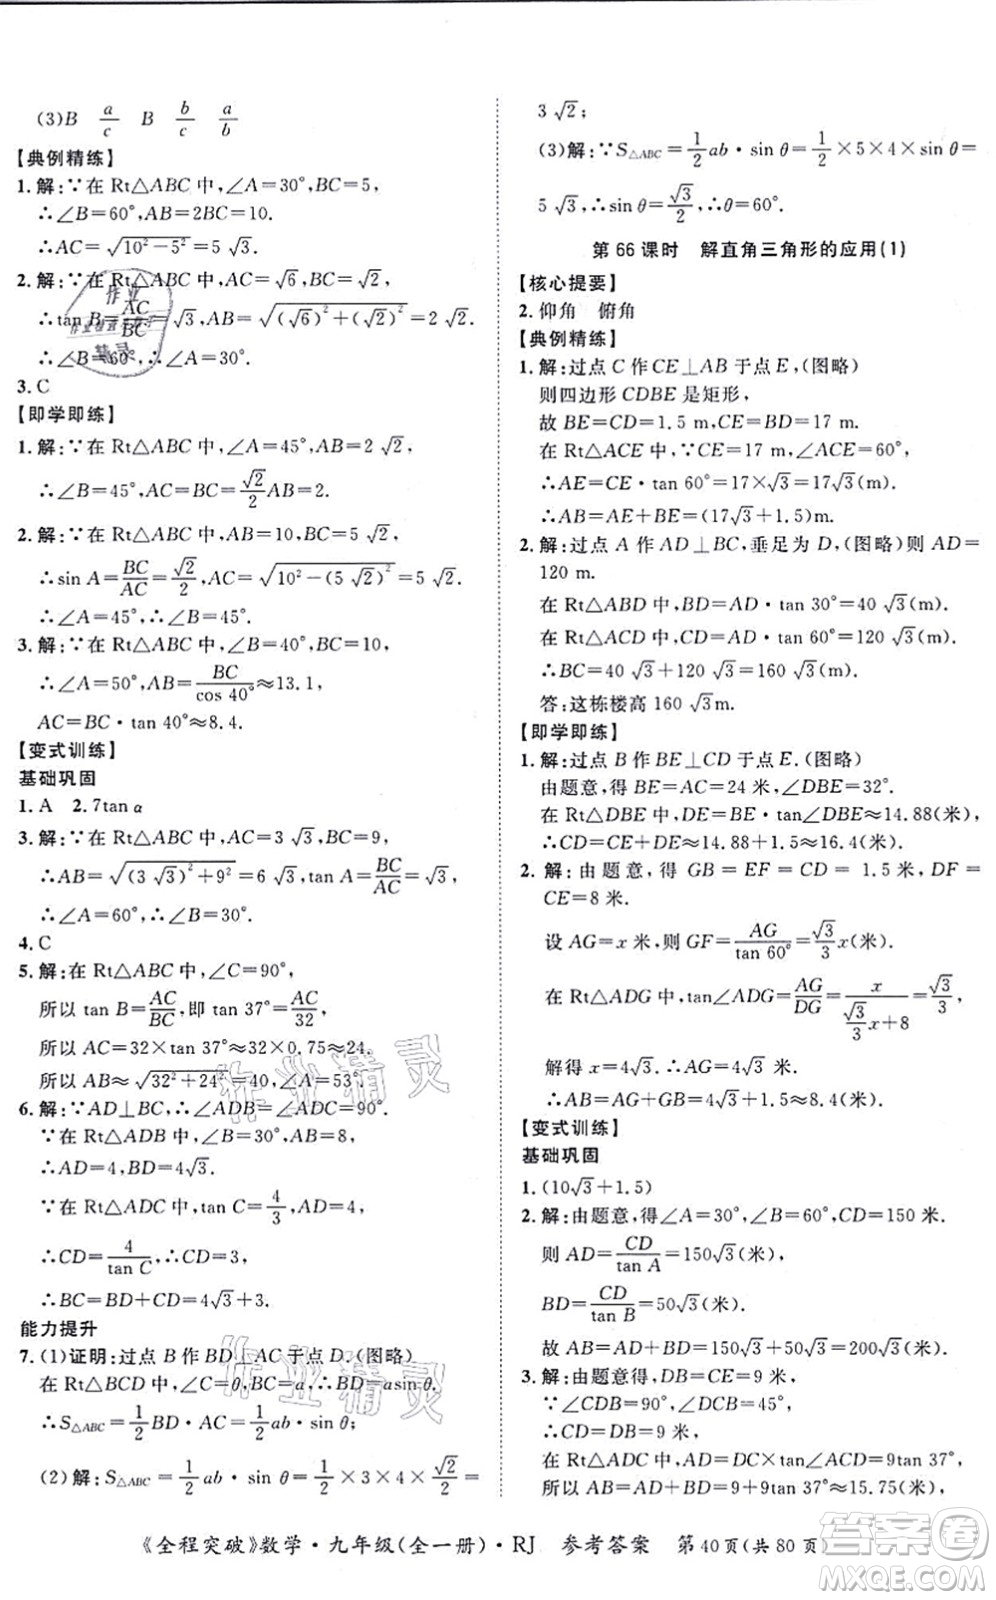 (3)B a/c B b/c a/b
【典例精练】
1.解:∵在 Rt△ABC 中,∠A=30°,BC=5,
∴∠B=60°,AB=2BC=10.
∴AC=√(10²-5²)=5√3.
2.解:∵在 Rt△ABC 中,AC=√6,BC=√2,
∴tan B=AC/BC=√3,AB=√((√6)²+(√2)²)=2√2.
∴∠B=60°,∴∠A=30°.
3.C
【即学即练】
1.解:∵在 Rt△ABC 中,∠A=45°,AB=2√2,
∴∠B=45°,AC=BC=√2/2AB=2.
2.解:∵在 Rt△ABC 中,AB=10,BC=5√2,
∴sin A=BC/AC=√2/2,AC=√(10²-(5√2)²)=5√2.
∴∠A=45°,∴∠A=45°.
3.解:∵在 Rt△ABC 中,∠B=40°,BC=10,
∴∠A=50°,AB=BC/cos 40°≈13.1,
AC=BC·tan 40°≈8.4.
【变式训练】
基础巩固
1.A 2.7tan α
3.解:∵在 Rt△ABC 中,AC=3√3,BC=9,
∴AB=√((3√3)²+9²)=6√3,tan A=BC/AC=√3,
∴∠A=60°,∴∠B=30°.
4.C
5.解:在 Rt△ABC 中,∠C=90°,
所以 tan B=AC/BC,即 tan 37°=AC/32,
所以 AC=32×tan 37°≈32×0.75=24.
所以 AB≈√(32²+24²)=40,∠A=53°.
6.解:∵AD⊥BC,∴∠ADB=∠ADC=90°.
∵在 Rt△ADB 中,∠B=30°,AB=8,
∴AD=4,BD=4√3.
∵在 Rt△ADC 中,tan C=4/3,AD=4,
∴CD=4/tan C,∴CD=3,
∴BC=BD+CD=4√3+3.
能力提升
7.(1)证明:过点 B 作 BD⊥AC 于点 D.(图略)
在 Rt△BCD 中,∠C=θ,BC=a,∴BD=asin θ.
∴S△ABC=1/2BD·AC=1/2ab·sin θ;
(2)解:S△ABC=1/2ab·sin θ=1/2×3×4×√2/2=
3√2;
(3)解:∵S△ABC=1/2ab·sin θ=1/2×5×4×sin θ=
5√3,∴sin θ=√3/2,∴θ=60°.
第66课时 解直角三角形的应用(1)
【核心提要】
2.仰角 俯角
【典例精练】
1.解:过点 C 作 CE⊥AB 于点 E.(图略)
则四边形 CDBE 是矩形,
故 BE=CD=1.5 m,CE=BD=17 m.
在 Rt△ACE 中,∵∠ACE=60°,
∴AE=CE·tan 60°=17×√3=17√3(m).
∴AB=AE+BE=(17√3+1.5)m.
2.解:过点 A 作 AD⊥BC,垂足为 D,(图略)则 AD=
120 m.
在 Rt△ABD 中,BD=AD·tan 30°=40√3(m),
在 Rt△ACD 中,CD=AD·tan 60°=120√3(m),
∴BC=40√3+120√3=160√3(m).
答:这栋楼高 160√3m.
【即学即练】
1.解:过点 B 作 BE⊥CD 于点 E.(图略)
由题意,得 BE=AC=24 米,∠DBE=32°.
在 Rt△DBE 中,DE=BE·tan∠DBE≈14.88(米),
∴CD=CE+DE≈14.88+1.5≈16.4(米).
2.解:由题意,得 GB=EF=CD=1.5米,DF=
CE=8 米.
设 AG=x 米,则 GF=AG/tan 60°=√3/3x(米).
在 Rt△ADG 中,tan∠ADG=AG/DG=x/(√3/3x+8)=√3/3,
解得 x=4√3.∴AG=4√3(米).
∴AB=AG+GB=4√3+1.5≈8.4(米).
【变式训练】
基础巩固
1.(10√3+1.5)
2.解:由题意,得∠A=30°,∠B=60°,CD=150 米.
则 AD=CD/tan A=150√3(米),
BD=CD/tan B=50√3(米).
故 AB=AD+BD=150√3+50√3=200√3(米).
3.解:由题意,得 BD=9 米,∠BCD=45°.
∴∠CBD=∠BCD=45°,
∴CD=DB=9 米,
在 Rt△ACD 中,AD=DC×tan∠ACD=9×tan 37°≈
9×0.75=6.75(米),
∴AB=AD+BD≈9+9×0.75≈15.8(米).
《全程突破》数学·九年级(全一册)·RJ 参考答案 第40页(共80页)
作业精灵
作业精灵
MXQE.COM